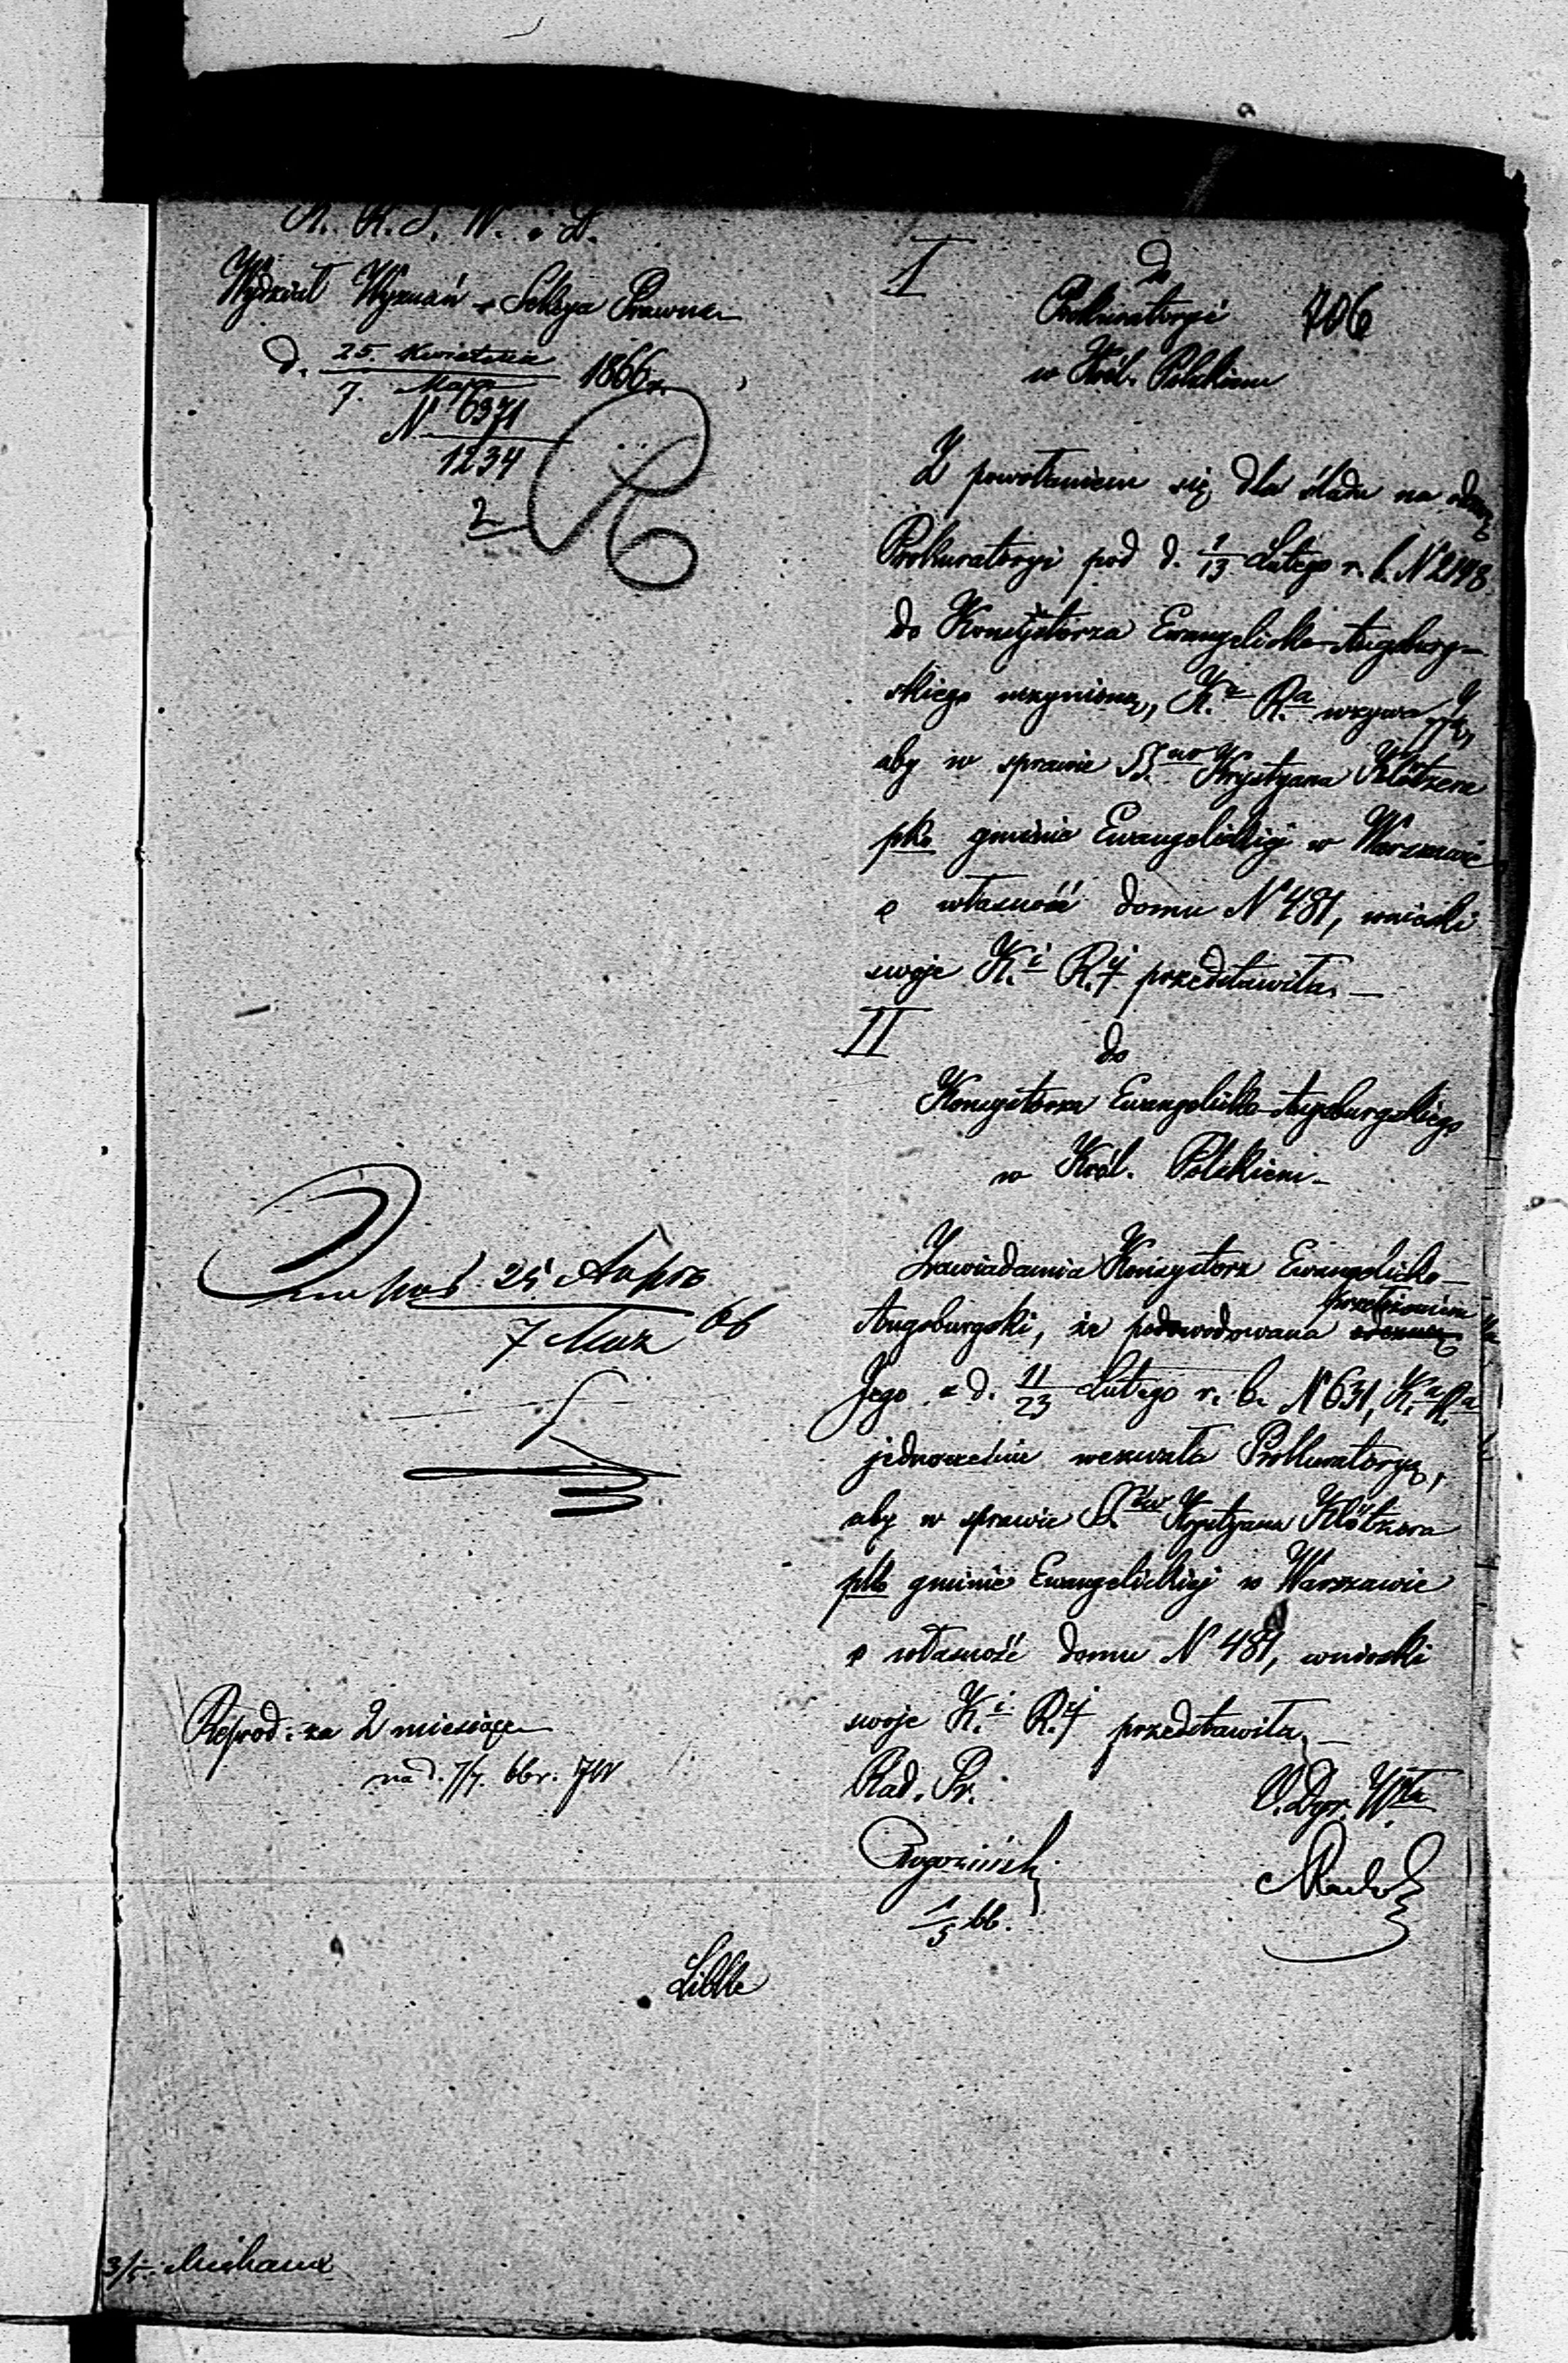 K. R. S. W. i D.
Wydział Wyznań Sekcya Prawna
d. 25. Kwietnia / 7. Maja 1866 r.
N 6371 / 1234
2
I
do
Prokuratoryi
706
w Król. Polskiem
Z powołaniem się dla śladu na odezwę
Prokuratoryi pod d. 1/13 Lutego r. b. N 2198
do Konsystorza Ewangelicko-Augsburg-
skiego uczynioną, K.a R.a wzywa ją,
aby w sprawie SS.ów Krystyana Klötzera
pko gminie Ewangelickiej w Warszawie
o własność domu N 481, wnioski
swoje K.i R.y przedstawiła. —
II
do
Konsystorza Ewangelicko-Augsburgskiego
w Król. Polskiem
Zawiadamia Konsystorz Ewangelicko-
przełożeniem
Augsburgski, że powodowana
Jego z d. 11/23 Lutego r. b. N 631, K.a R.a
jednocześnie wezwała Prokuratoryą,
aby w sprawie SS.ów Krystyana Klötzera
pko gminie Ewangelickiej w Warszawie
o własność domu N 481, wnioski
swoje K.i R.y przedstawiła. —
25 Апрѣ
7 Мая 66
Reprod: za 2 miesiące
na d. 7/7. 66 r.
Rad. Pr.
V. Dyr. W.łu
Rogoziński
1/5 66.
Libke
3/5.